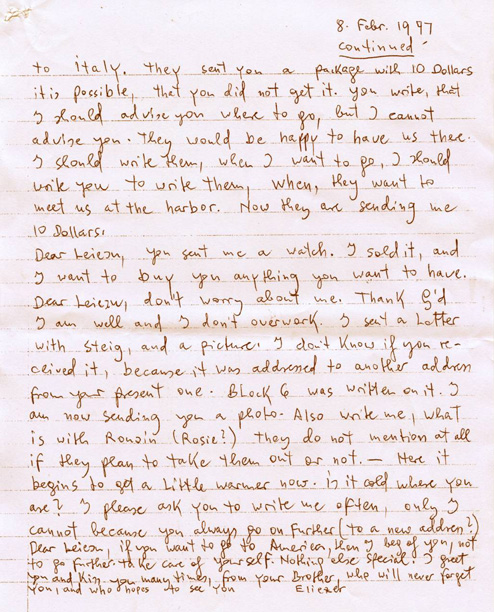 8. Febr. 1947
continued
to Italy. They sent you a package with 10 Dollars
it is possible, that you did not get it. you write, that
I should advise you where to go, but I cannot
advise you. They would be happy to have us there.
I should write them, when I want to go, I should
write you to write them, when, they want to
meet us at the harbor. Now they are sending me
10 Dollars.
Dear Leiezu, you sent me a watch. I sold it, and
I want to buy you anything you want to have.
Dear Leiezu, don't worry about me. Thank G'd
I am well and I don't overwork. I sent a Letter
with Steig, and a picture. I don't know if you re-
ceived it, because it was addressed to another address
from your present one. Block 6 was written on it. I
am now sending you a photo. Also write me, what
is with (Rosie?) they do not mention at all
if they plan to take them out or not. — Here it
begins to get a Little warmer now. is it cold where you
are? I please ask you to write me often, only I
cannot because you always go on further (to a new address?)
Dear Leiezu, if you want to go to America, then I beg of you, not
to go further. Take care of yourself. Nothing else special. I greet
you and Kiss you many times, from your Brother, who will never forget
you, and who hopes to see you Eliezer